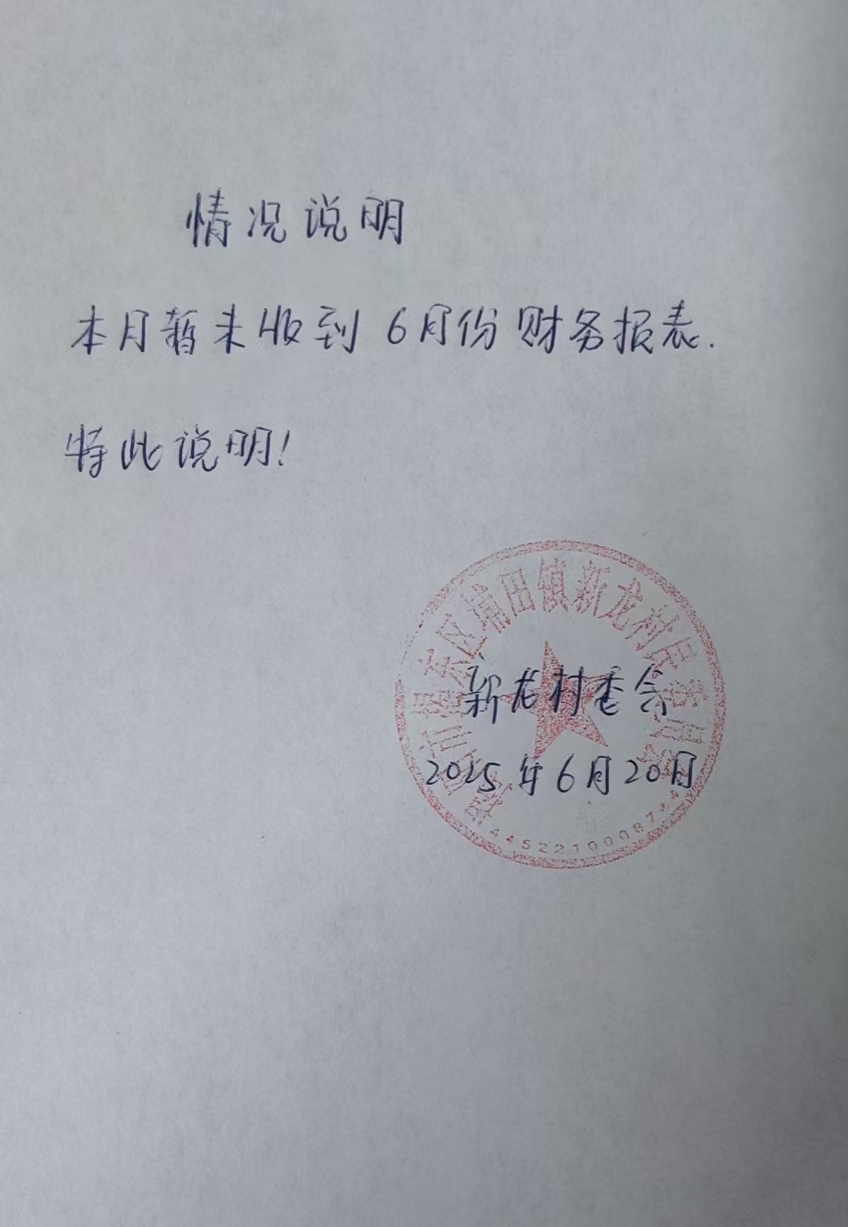 情况说明
本月暂未收到6月份财务报表.
特此说明!
揭东区埔田镇新龙村民委员会
新龙村委会
2025年6月20日